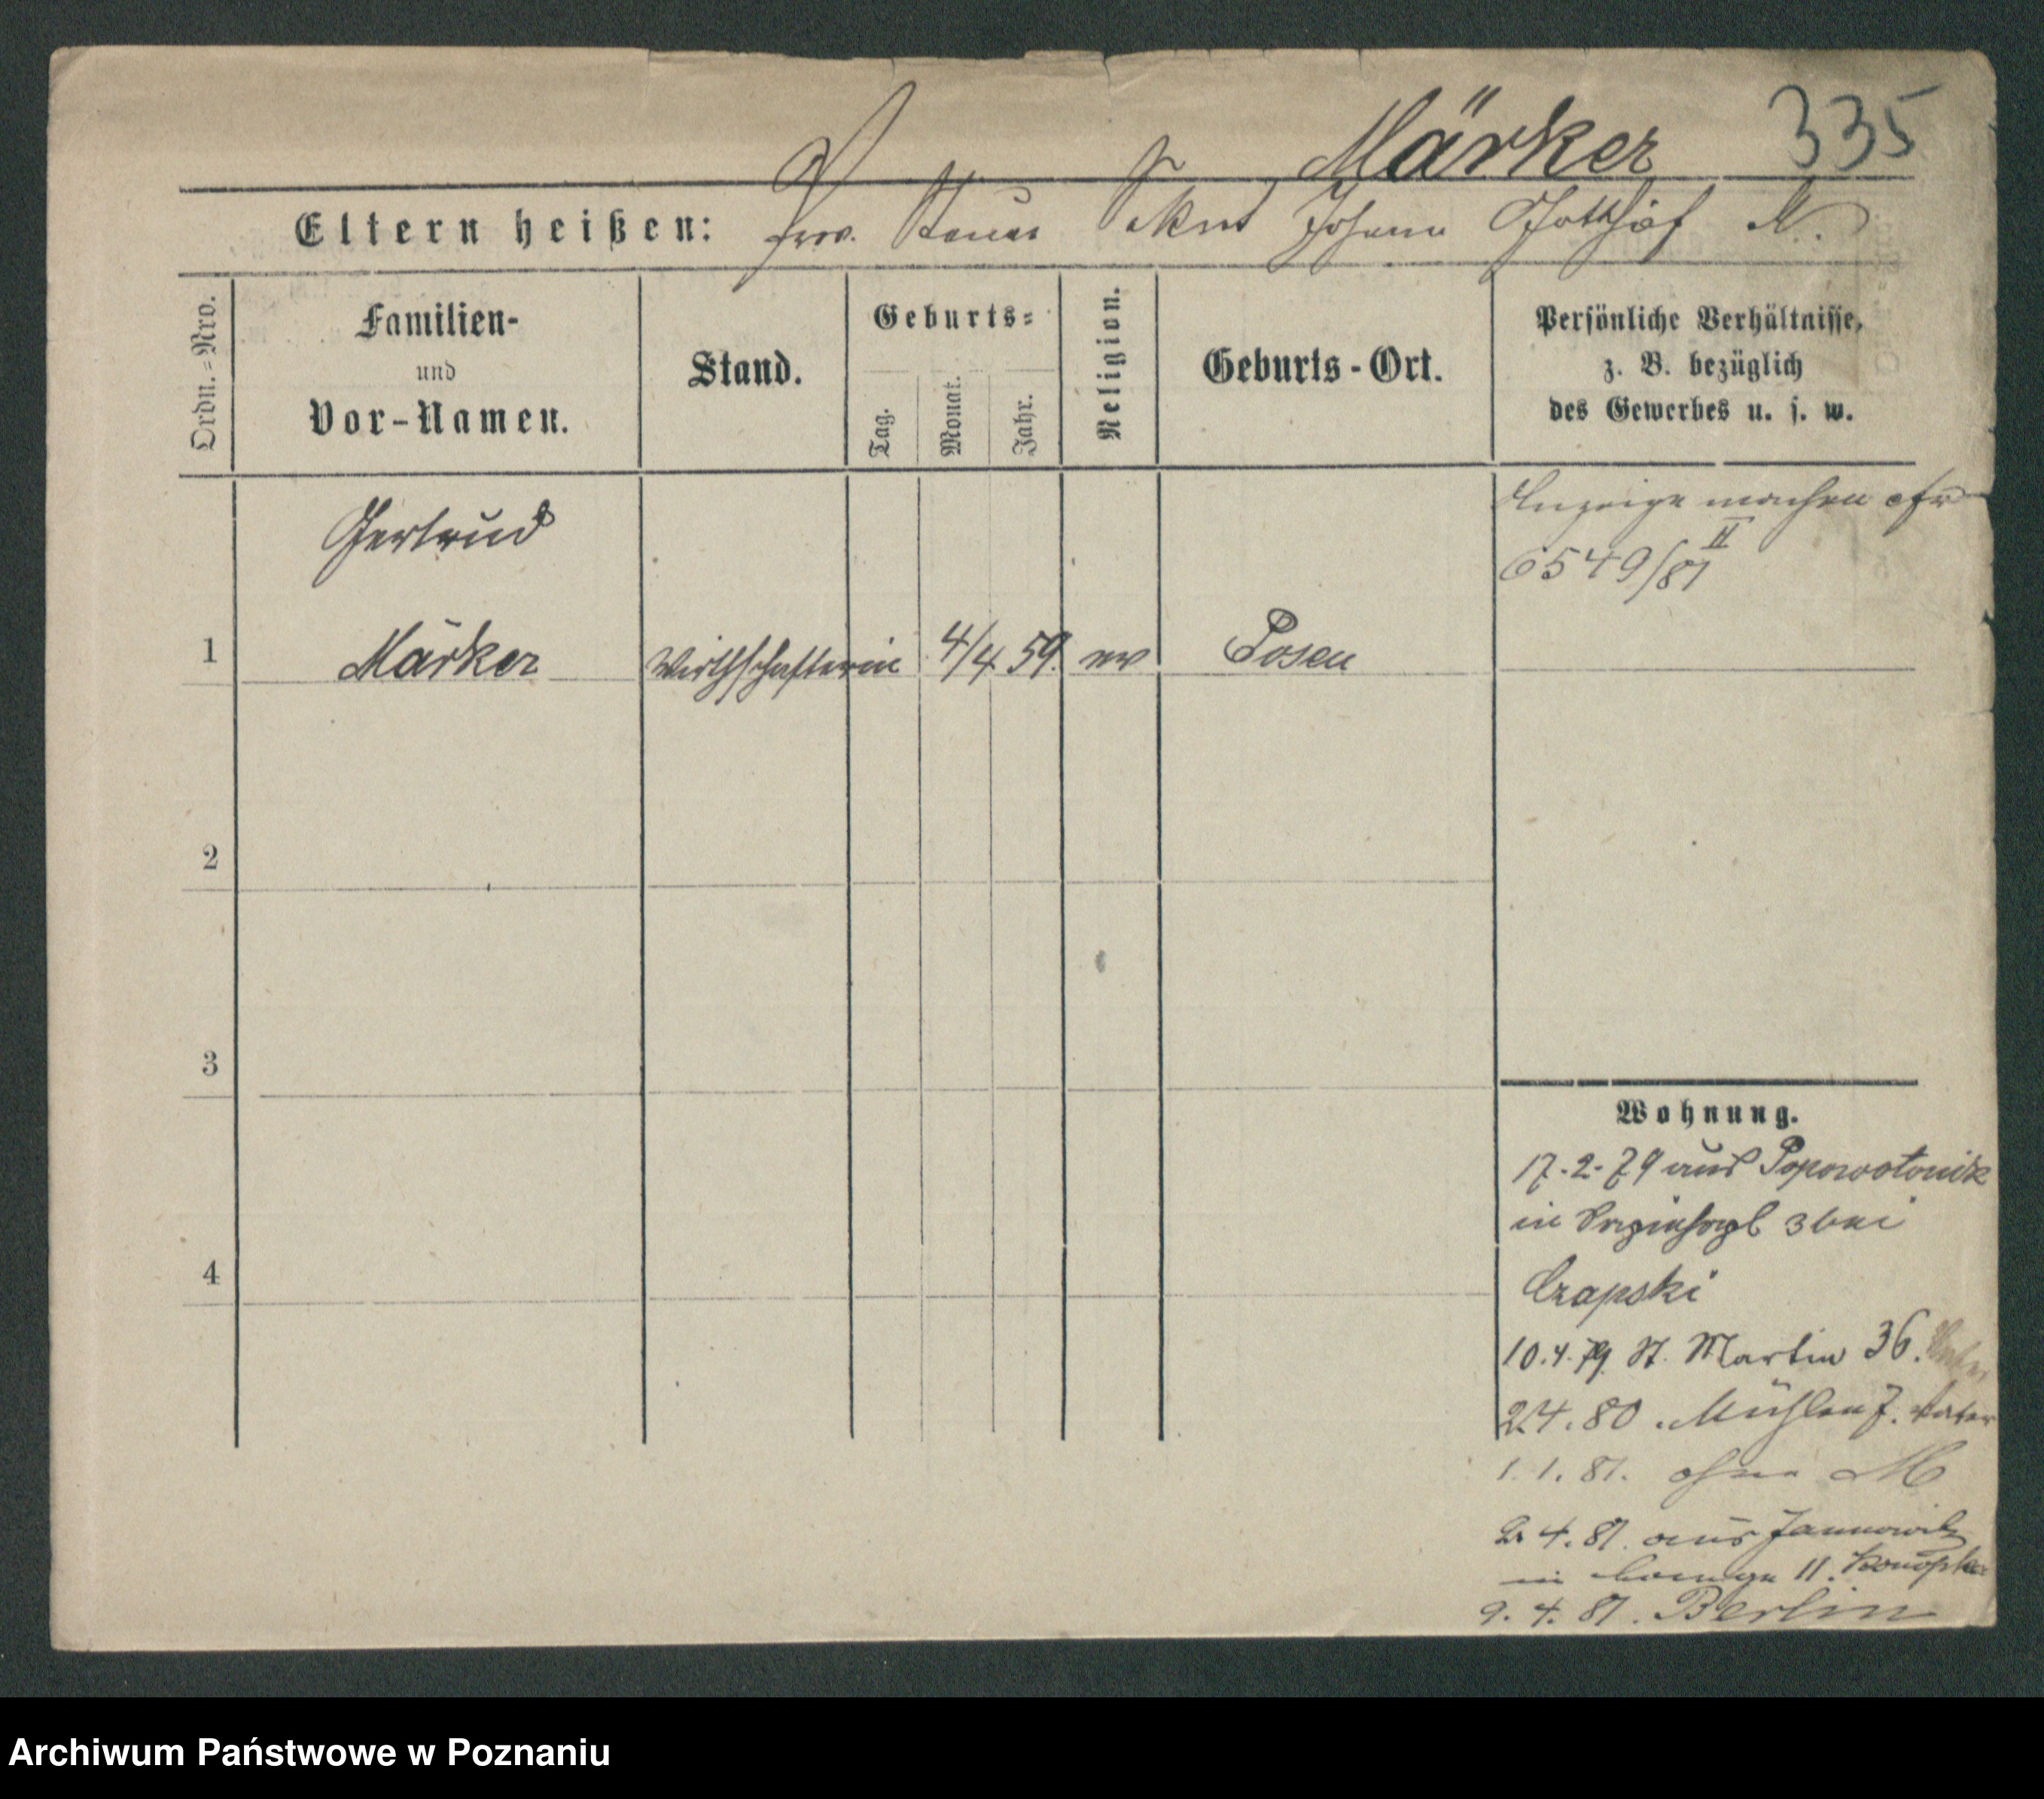 Märker 335
Eltern heißen: Prov. Steuer Sekret Johann Gotthilf M.
Ordn.-Nro.
Familien-
und
Vor-Namen.
Stand.
Geburts-
Tag.
Monat.
Jahr.
Religion.
Geburts-Ort.
Persönliche Verhältnisse,
z. B. bezüglich
des Gewerbes u. s. w.
Anzeige machen cfr
6549/81 II
Gertrud
1 Märker Wirthschafterin 4/4 59. ev Posen
2
3
4
Wohnung.
17.2.79 aus
in 3 bei
Czapski
10.4.79. St. Martin 36.
2.4.80. Mühlen 7. Vater
1.1.81. ohne M
2.4.81. aus Jannowitz
in 11. Konopka
9.4.81. Berlin
Archiwum Państwowe w Poznaniu